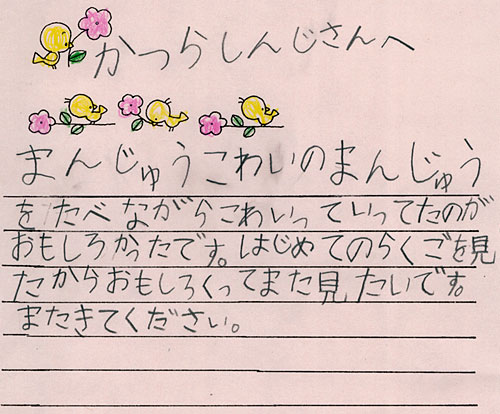 かつらしんじさんへ
まんじゅうこわいのまんじゅう
を たべ ながらこわいっていってたのが
おもしろかったです。はじめてのらくごを見
たからおもしろくってまた見たいです。
またきてください。